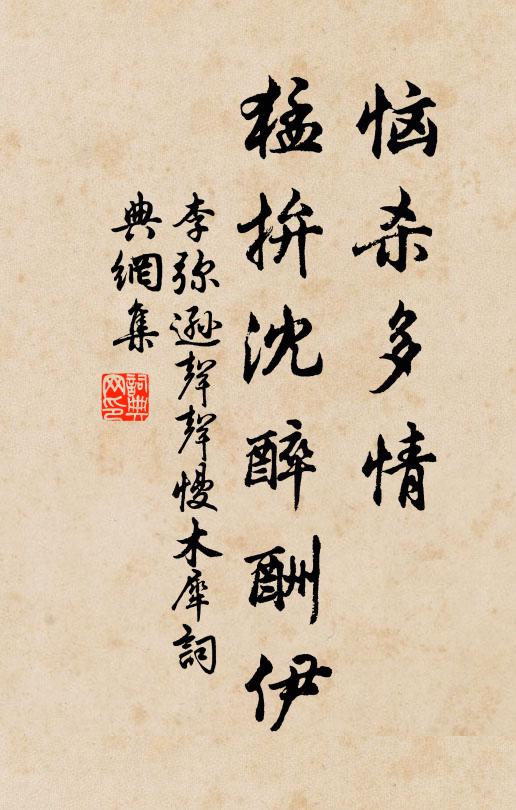 恼杀多情
猛拚沈醉酬伊
李弥逊聲聲慢木犀詞
典網集
詞典网印